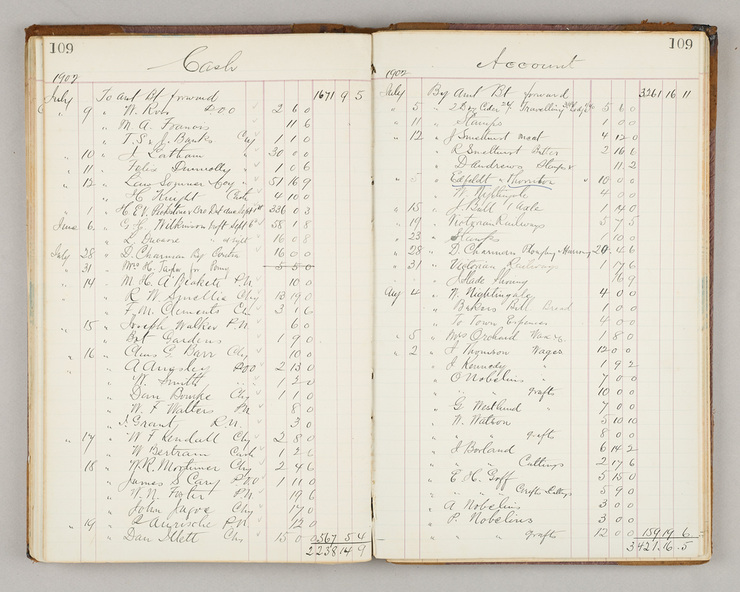 109
Cash
1902
July To Amt Bt forward 1671 9 5
9 " W. Robs P.O.O 2 6 0
" M. A. 11 6
" T. S. & J. Banks Chq 1 1 0
" 10 " J. Latham " 30 0 0
" 11 " Donnolly " 1 0 6
" 12 " " 51 16 9
" H. Knight 4 10 0
1 " 336 0 3
June 6 " G. H. Wilkinson Dft Sept 6th 58 1 8
" L. " 16 0 8
July 28 " D. Charman By 16 0 0
" 31 " Mrs H. Taylor for Pony 5 8 0
" 14 " M. H. A Beakett P.N. 10 0
" R W Smellie Chq 13 19 0
" F. M. Clements Chq 3 1 6
" 15 " Joseph Walker P.N. 6 0
" Bot Gardens 1 9 0
" 16 " Chas G. Barr Chq 10 0
" A Augsley P.O.O 2 13 0
" W. Smith " 1 2 0
" Dan Bourke Chq 1 1 0
" W. F Walters P.N. 8 0
" J. Grant P.N. 3 0
" 17 " W F Kendall Chq 2 8 0
" W Bertram Cash 1 2 6
" 18 " W. R. Mortimer Chq 2 4 6
" James S Cary P.O.O 1 1 0
" W. N. Foster P.N. 19 6
" John Chq 17 0
" 19 " P.N. 12 0
" Dan Chq 15 0 0 567 5 4
2238 14 9
109
Account
1902
July By Amt Bt forward 3261 16 11
" 5 " Travelling 5 6 0
" 11 " Stamps 1 0 0
" 12 " J Smethurst meat 4 12 0
" R Smethurst Butter 2 16 6
" D Andrews 11 2
" " Thornton " 10 0 0
" W. Nightingale 4 0 0
" 15 " J. Bell 1 Axle 1 14 0
" 19 " Victorian Railways 5 7 5
" 23 " Stamps 1 10 0
" 28 " D. Charman 20 4 6
" 31 " Victorian Railways 1 17 6
" J Slade 16 9
Aug 4 " W. Nightingale 4 0 0
" Bakers Bill Bread 1 0 0
" To Town Expenses 4 0 0
" 5 " Mrs Orchard 1 8 0
" 2 " F Thomson Wages 12 0 0
" J Kennedy " 1 9 2
" O Nobelius " 7 0 0
" " " grafts 10 0 0
" G. Westlund " 7 0 0
" W. Watson " 5 10 10
" " " grafts 8 0 0
" J Borland 6 14 2
" " " Cuttings 2 17 6
" E. H. Goff 5 15 0
" " " Grafts Cuttings 5 9 0
" A Nobelius 3 0 0
" P. Nobelius 3 0 0
" " " grafts 12 0 0 159 19 6
3421 16 5